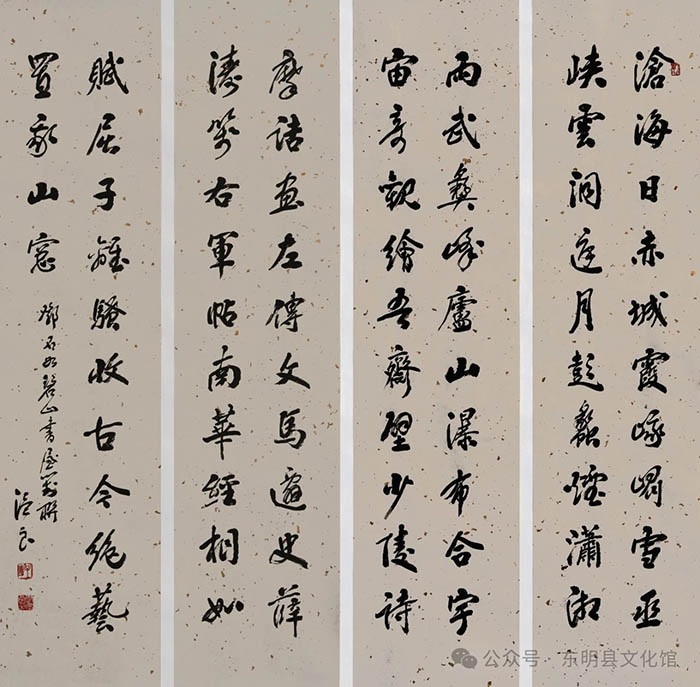 滄海日赤城霞峨眉雪巫
峽雲洞庭月彭蠡煙瀟湘
雨武彝峰廬山瀑布合宇
宙奇觀繪吾齋壁少陵詩
摩詰畫左傳文馬遷史薛
濤箋右軍帖南華經相如
賦屈子離騷收古今絕藝
置我山窓
鄧石如碧山書屋對聯
公众号·东明县文化馆